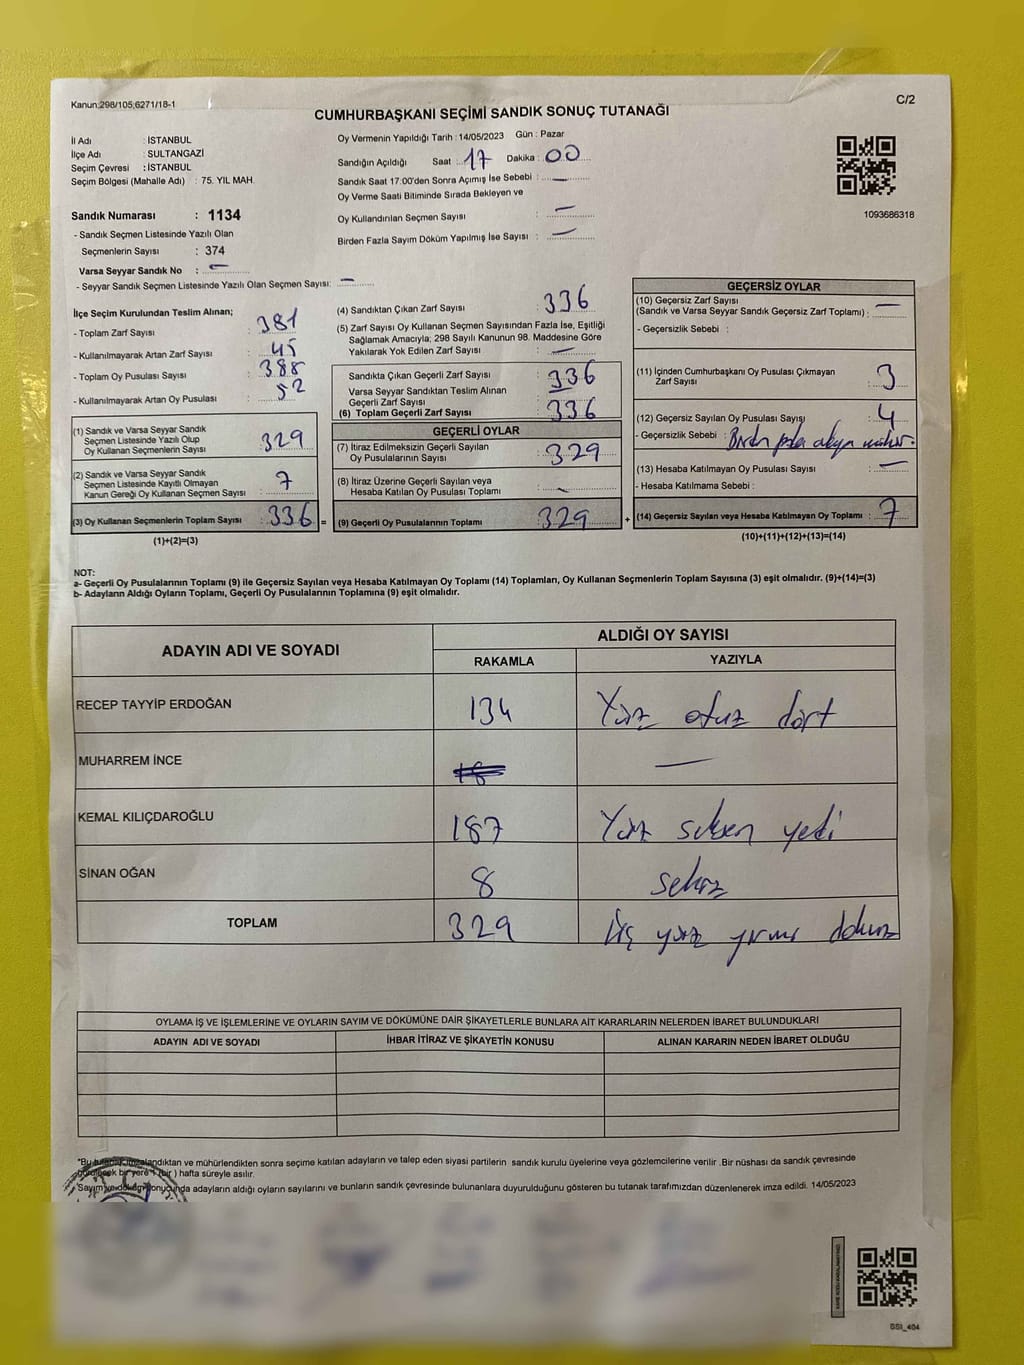 Kanun:298/105;6271/18-1
C/2
CUMHURBAŞKANI SEÇİMİ SANDIK SONUÇ TUTANAĞI
İl Adı : İSTANBUL
İlçe Adı : SULTANGAZİ
Seçim Çevresi : İSTANBUL
Seçim Bölgesi (Mahalle Adı) : 75. YIL MAH.
Oy Vermenin Yapıldığı Tarih : 14/05/2023 Gün : Pazar
Sandığın Açıldığı Saat : 17 Dakika : 00
Sandık Saat 17:00'den Sonra Açımış İse Sebebi : —
Oy Verme Saati Bitiminde Sırada Bekleyen ve
Oy Kullandırılan Seçmen Sayısı : —
Birden Fazla Sayım Döküm Yapılmış İse Sayısı : —
1093686318
Sandık Numarası : 1134
- Sandık Seçmen Listesinde Yazılı Olan
Seçmenlerin Sayısı : 374
Varsa Seyyar Sandık No : —
- Seyyar Sandık Seçmen Listesinde Yazılı Olan Seçmen Sayısı: —
İlçe Seçim Kurulundan Teslim Alınan;
- Toplam Zarf Sayısı : 381
- Kullanılmayarak Artan Zarf Sayısı : 45
- Toplam Oy Pusulası Sayısı : 388
- Kullanılmayarak Artan Oy Pusulası : 52
(1) Sandık ve Varsa Seyyar Sandık
Seçmen Listesinde Yazılı Olup
Oy Kullanan Seçmenlerin Sayısı : 329
(2) Sandık ve Varsa Seyyar Sandık
Seçmen Listesinde Kayıtlı Olmayan
Kanun Gereği Oy Kullanan Seçmen Sayısı : 7
(3) Oy Kullanan Seçmenlerin Toplam Sayısı : 336 =
(1)+(2)=(3)
(4) Sandıktan Çıkan Zarf Sayısı : 336
(5) Zarf Sayısı Oy Kullanan Seçmen Sayısından Fazla İse, Eşitliği
Sağlamak Amacıyla; 298 Sayılı Kanunun 98. Maddesine Göre
Yakılarak Yok Edilen Zarf Sayısı : —
Sandıkta Çıkan Geçerli Zarf Sayısı : 336
Varsa Seyyar Sandıktan Teslim Alınan
Geçerli Zarf Sayısı :
(6) Toplam Geçerli Zarf Sayısı : 336
GEÇERLİ OYLAR
(7) İtiraz Edilmeksizin Geçerli Sayılan
Oy Pusulalarının Sayısı : 329
(8) İtiraz Üzerine Geçerli Sayılan veya
Hesaba Katılan Oy Pusulası Toplamı : —
(9) Geçerli Oy Pusulalarının Toplamı : 329 +
GEÇERSİZ OYLAR
(10) Geçersiz Zarf Sayısı
(Sandık ve Varsa Seyyar Sandık Geçersiz Zarf Toplamı) : —
- Geçersizlik Sebebi :
(11) İçinden Cumhurbaşkanı Oy Pusulası Çıkmayan
Zarf Sayısı : 3
(12) Geçersiz Sayılan Oy Pusulası Sayısı : 4
- Geçersizlik Sebebi : Birden
(13) Hesaba Katılmayan Oy Pusulası Sayısı : —
- Hesaba Katılmama Sebebi :
(14) Geçersiz Sayılan veya Hesaba Katılmayan Oy Toplamı : 7
(10)+(11)+(12)+(13)=(14)
NOT:
a- Geçerli Oy Pusulalarının Toplamı (9) ile Geçersiz Sayılan veya Hesaba Katılmayan Oy Toplamı (14) Toplamları, Oy Kullanan Seçmenlerin Toplam Sayısına (3) eşit olmalıdır. (9)+(14)=(3)
b- Adayların Aldığı Oyların Toplamı, Geçerli Oy Pusulalarının Toplamına (9) eşit olmalıdır.
ADAYIN ADI VE SOYADI
ALDIĞI OY SAYISI
RAKAMLA YAZIYLA
RECEP TAYYİP ERDOĞAN 134 Yüz otuz dört
MUHARREM İNCE —
KEMAL KILIÇDAROĞLU 187 Yüz seksen yedi
SİNAN OĞAN 8 sekiz
TOPLAM 329 Üç yüz yirmi dokuz
OYLAMA İŞ VE İŞLEMLERİNE VE OYLARIN SAYIM VE DÖKÜMÜNE DAİR ŞİKAYETLERLE BUNLARA AİT KARARLARIN NELERDEN İBARET BULUNDUKLARI
ADAYIN ADI VE SOYADI İHBAR İTİRAZ VE ŞİKAYETİN KONUSU ALINAN KARARIN NEDEN İBARET OLDUĞU
"Bu tutanak imzalandıktan ve mühürlendikten sonra seçime katılan adayların ve talep eden siyasi partilerin sandık kurulu üyelerine veya gözlemcilerine verilir .Bir nüshası da sandık çevresinde
görülecek bir yere 1 (bir ) hafta süreyle asılır.
"Sayım ve döküm sonucunda adayların aldığı oyların sayılarını ve bunların sandık çevresinde bulunanlara duyurulduğunu gösteren bu tutanak tarafımızdan düzenlenerek imza edildi. 14/05/2023
SSI_404